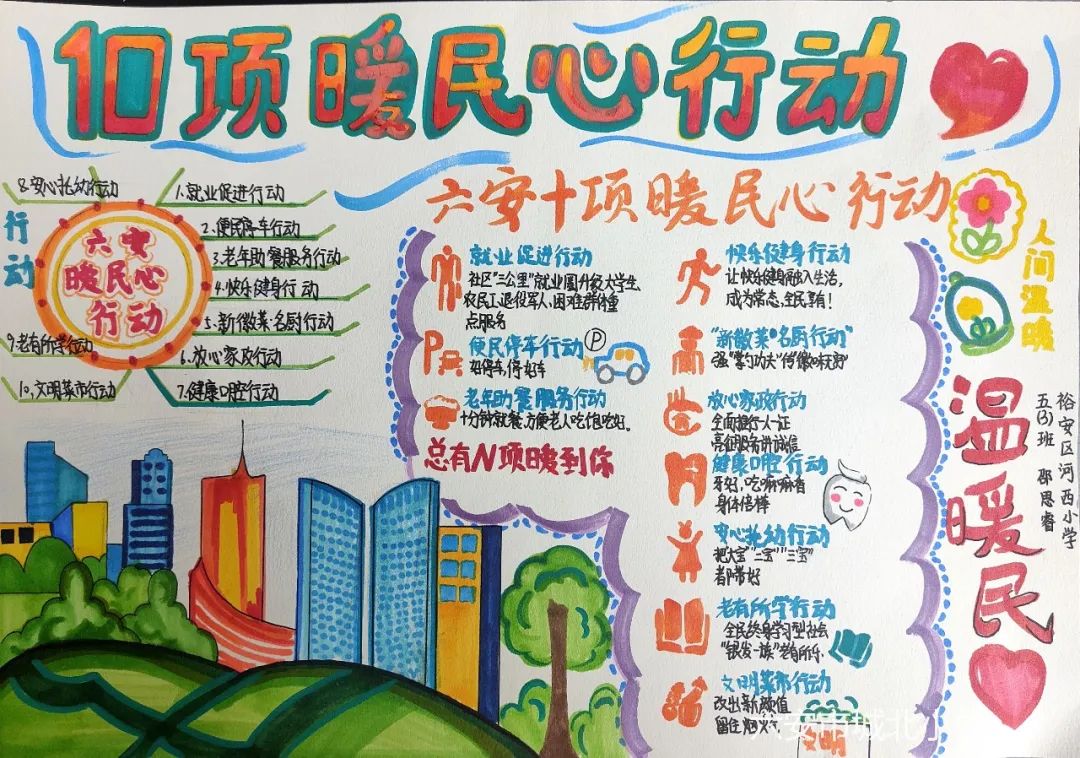 10项暖民心行动
8.安心托幼行动
1.就业促进行动
2.便民停车行动
3.老年助餐服务行动
4.快乐健身行动
5.新徽菜·名厨行动
6.放心家政行动
7.健康口腔行动
9.老有所学行动
10.文明菜市行动
行动
六安
暖民心
行动
六安十项暖民心行动
就业促进行动
社区"三公里"就业圈升级大学生、
农民工退役军人、困难群体重
点服务
便民停车行动
P
好停车,停好车
老年助餐服务行动
十分钟就餐,方便老人吃饱吃好。
总有N项暖到你
快乐健身行动
让快乐健身融入生活,
成为常态,全民享有!
"新徽菜·名厨行动"
强"掌勺功夫"传徽味
放心家政行动
全面推行一人一证
亮征服务讲诚信
健康口腔行动
牙好,吃嘛嘛香
身体倍棒
安心托幼行动
把大宝"二宝""三宝"
都带好
老有所学行动
全民终身学习型社会
"银发一族"老有所乐.
文明菜市行动
改出新颜值
留住烟火气
文明
人间温暖
温暖民
裕安区河西小学
五(3)班 邵思睿
六安市城北小